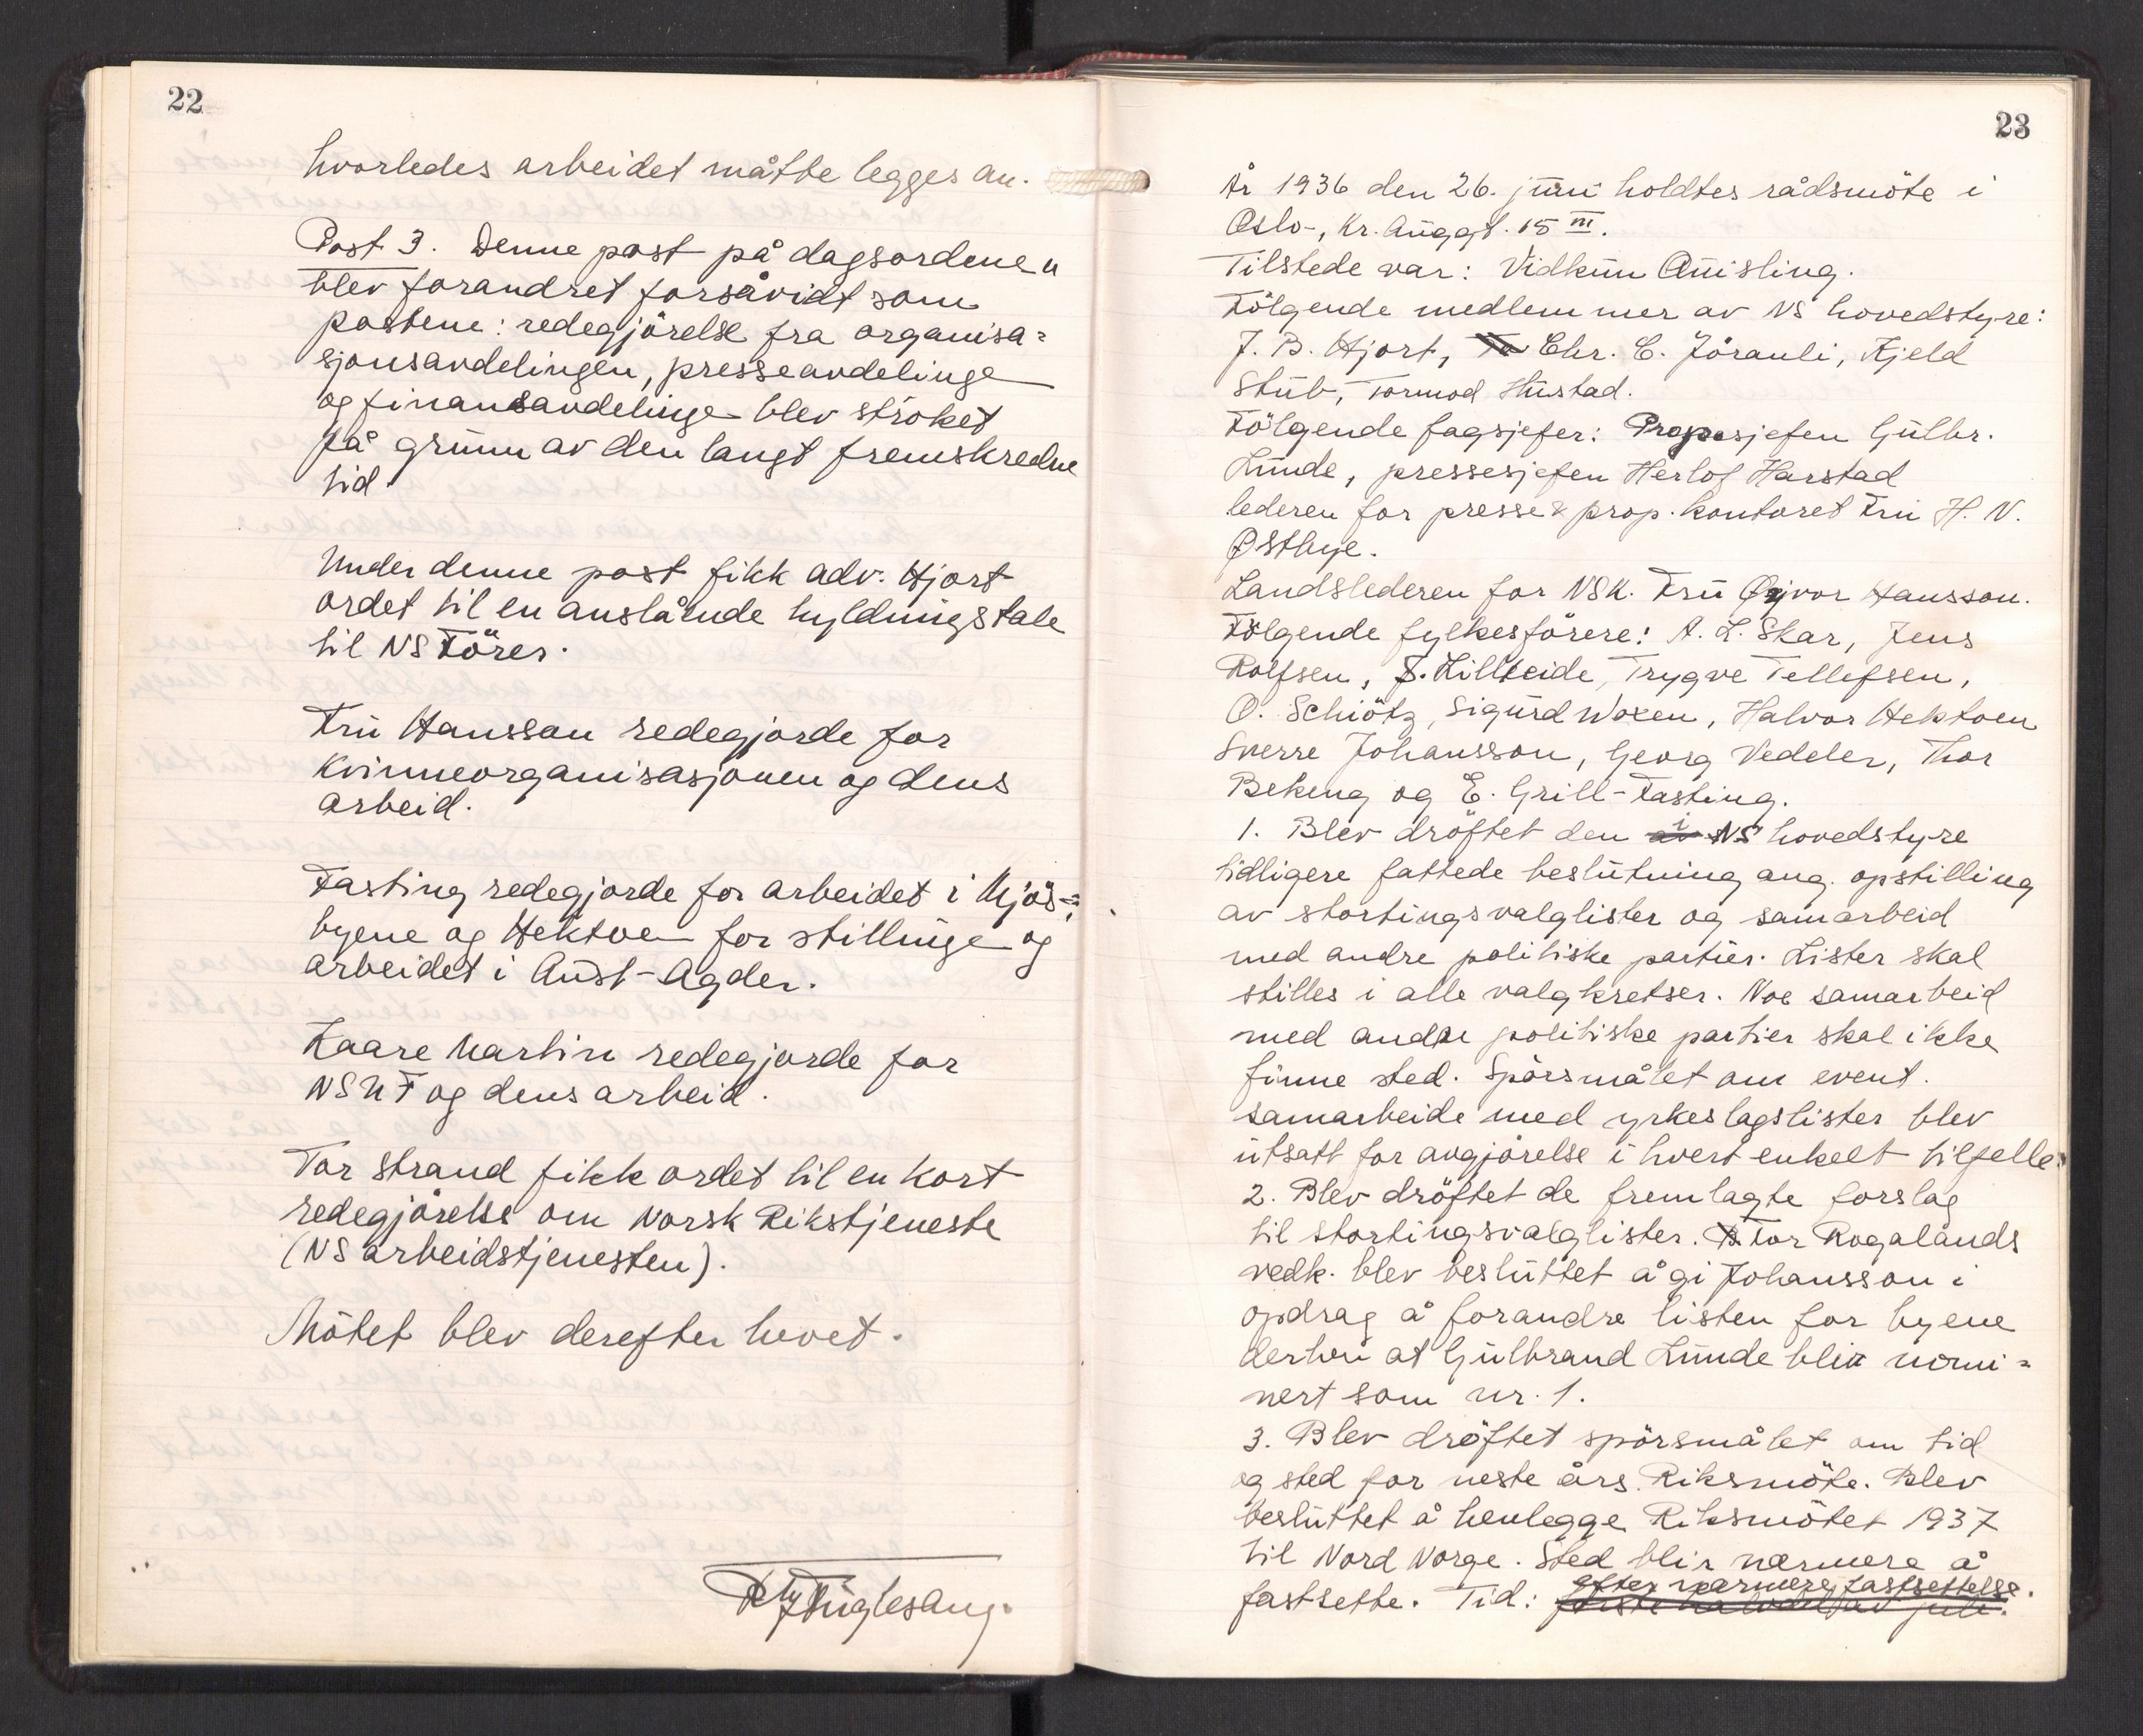 22
hvorledes arbeidet måtte legges an.
Post 3. Denne post på dagsordenen
blev forandret forsåvidt som
postene: redegjörelse fra organisa=
sjonsavdelingen, presseavdelinge
og finansavdelinge blev ströket
på grunn av den langt fremskredne
tid.
Under denne post fikk adv. Hjort
ordet til en anslående hyldningstale
til NS Förer.
Fru Hansson redegjorde for
Kvinneorganisasjonen og dens
arbeid.
Fasting redegjorde for arbeidet i Mjös=
byene og Hektoen for stillinge og
arbeidet i Aust-Agder.
Kaare Martin redegjorde for
NSUF og dens arbeid.
Tor Strand fikk ordet til en kort
redegjörelse om Norsk Rikstjeneste
(NS arbeidstjenesten).
Mötet blev derefter hevet.
Fuglesang.
23
År 1936 den 26. juni holdtes rådsmöte i
Oslo-, Kr. Auggt. 15 III.
Tilstede var: Vidkun Quisling.
Fölgende medlemmer av NS hovedstyre:
J. B. Hjort, To Chr. C. Jöranli, Kjeld
Stub, Tormod Hustad.
Fölgende fagsjefer: Propesjefen Gulbr.
Lunde, pressesjefen Herlof Harstad
lederen for presse & prop. kontoret Fru H. N.
Østbye.
Landslederen for NSK. Fru Øyvor Hansson.
Fölgende fylkesförere: A. L. Skar, Jens
Rolfsen, J. Lillteide, Trygve Tellefsen,
O. Schiötz, Sigurd Woxen, Halvor Hektoen
Sverre Johansson, Georg Vedeler, Thor
Bekeng og E. Grill-Fasting.
1. Blev dröftet den av i NS hovedstyre
tidligere fattede beslutning ang. opstilling
av stortingsvalglister og samarbeid
med andre politiske partier. Lister skal
stilles i alle valgkretser. Noe samarbeid
med andre politiske partier skal ikke
finne sted. Spörsmålet om event.
samarbeide med yrkeslagslister blev
utsatt for avgjörelse i hvert enkelt tilfelle.
2. Blev dröftet de fremlagte forslag
til stortingsvalglister. For Rogalands
vedk. blev besluttet å gi Johansson i
opdrag å forandre listen for byene
derhen at Gulbrand Lunde blir nomi=
nert som nr. 1.
3. Blev dröftet spörsmålet om tid
og sted for neste års Riksmöte. Blev
besluttet å henlegge Riksmötet 1937
til Nord Norge. Sted blir nærmere å
efter nærmere fastsettelse.
fastsette. Tid: förste halvdel av juli.